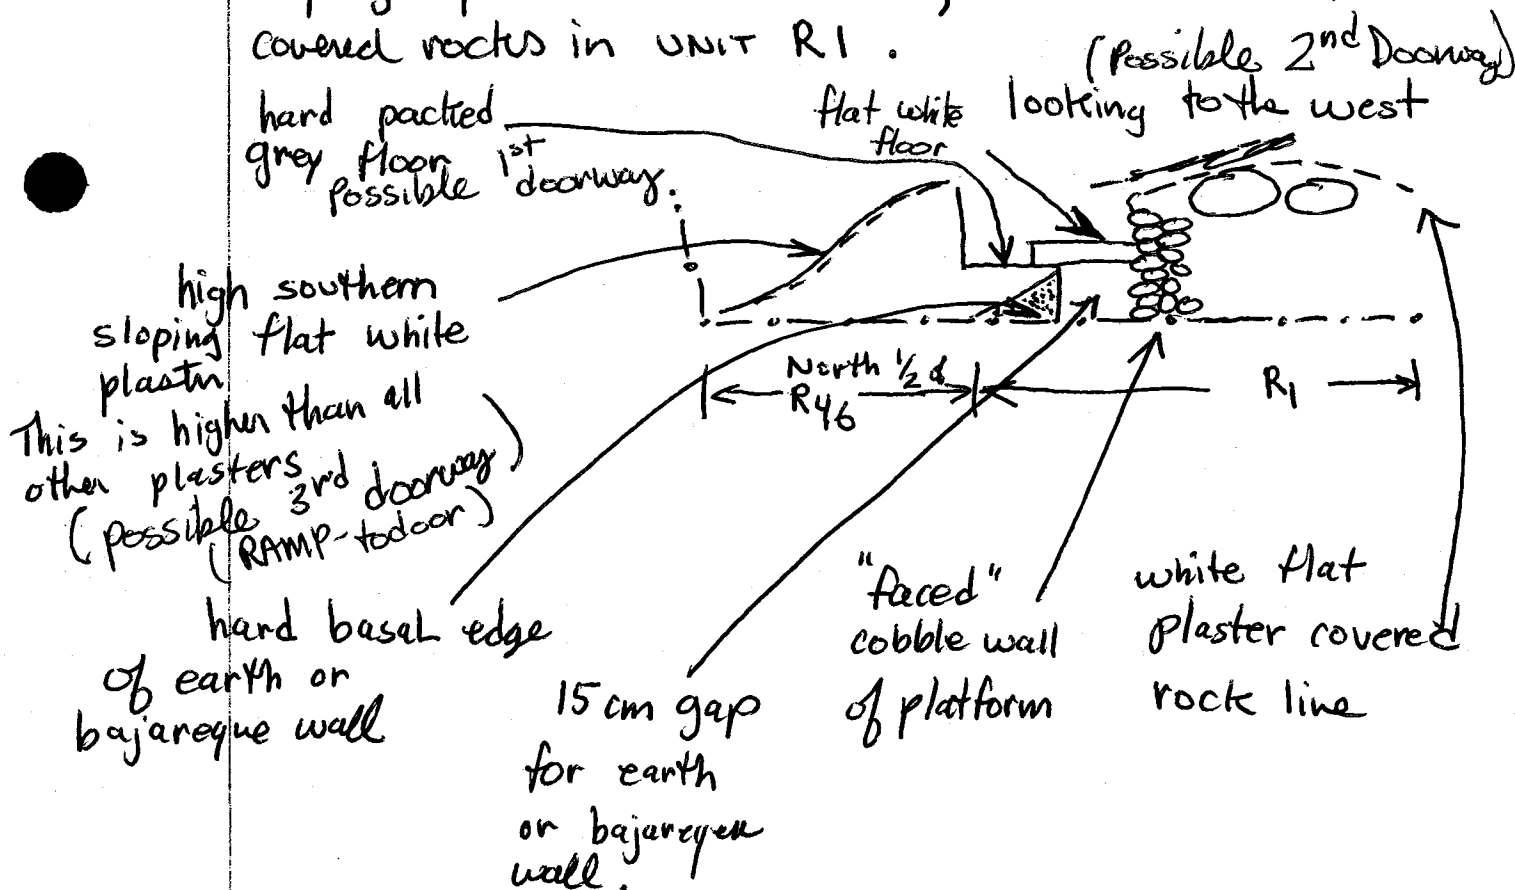 covered rocks in UNIT R1.
(Possible 2nd Doorway)
looking to the west
flat white
floor
hard packed
grey floor
Possible 1st
doorway.
high southern
sloping flat white
plaster
This is higher than all
other plasters
(possible 3rd doorway)
(RAMP-to door)
North 1/2 of
R46
R1
hard basal edge
of earth or
bajareque wall
15 cm gap
for earth
or bajareque
wall.
"faced"
cobble wall
of platform
white flat
plaster covered
rock line